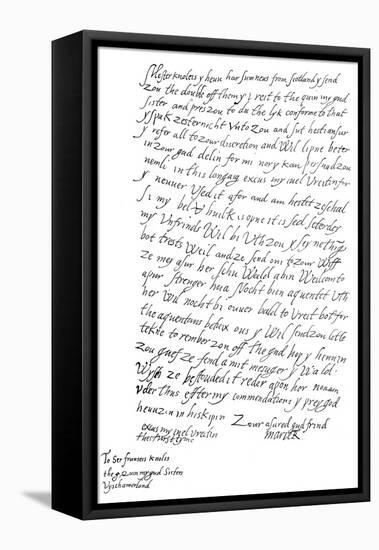 Mester knoleis y heuu har sum neus from scotland y send
zou the double off them y vreit to the quin my gud
sister and pres zou to du the lyk conforme to that
y spak zesternicht unto zou and sut hesti ansur
y refer all to zour discretion and wil lipne beter
in zour gud delin for mi nor y kan persuad zou
nemli in this langasg excus my iuel vreitin for
y neuuer vsed it afor and am hestet ze schal
si my bel whuilk is opne it is sed seterday
my unfrinds wil bi vth zou y sey nething
bot trests weil and ze send oni to zour wiff
ze mey asur her schu wald a bin weilcom to
a pur strenger hua nocht bien aquentet vth
her wil nocht bi ouuer bald to vreit bot for
the aquentans betwix ous y wil send zou letle
tekne to rember zou off the gud hop y heuu in
zou ques ze fend a mit mesager y wald
wysh ze bestouded it reder apon her non ain
vder thus effter my commendations y prey god
heuu zou in his kipin
Zour asured gud frind
Marie R
excus my iuel vreitin
thes furst tyme
To Ser fransis knoleis
the q. quin my gud sisters
vischamerland